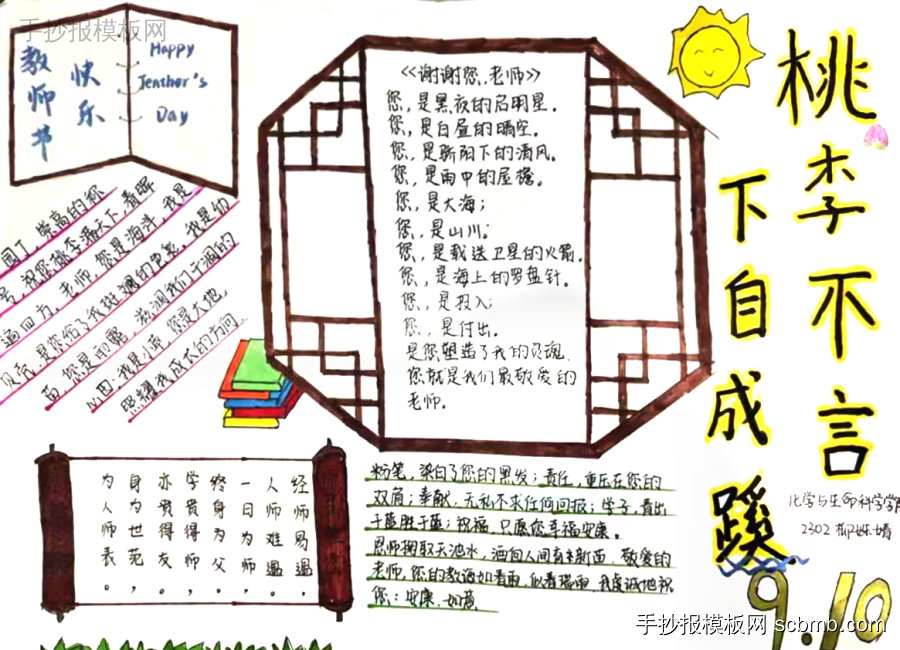 手抄报模板网
教师节
快乐
Happy
Teacher's
Day
桃李不言
下自成蹊
<<谢谢您,老师>>
您,是黑夜的启明星。
您,是白昼的晴空。
您,是骄阳下的清风。
您,是雨中的屋檐。
您,是大海;
您,是山川。
您,是载送卫星的火箭。
您,是海上的罗盘针。
您,是投入;
您,是付出。
是您塑造了我的灵魂.
您就是我们最敬爱的
老师。
园丁,崇高的称
号,祝您桃李满天下,春晖
遍四方,老师,您是海洋,我是
贝壳,是您给了我斑斓的色彩,我是幼
苗,您是雨露,滋润我们干涸的
心田;我是小草,您是大地,
照耀我成长的方向.
经师易遇
人师难遇。
一日为师,
终身为父。
学贵得师,
亦贵得友。
身为世范,
为人师表。
粉笔,染白了您的黑发;责任,重压在您的
双肩;奉献,无私不求任何回报;学子,青出
于蓝胜于蓝;祝福,只愿您幸福安康。
恩师掬取天池水,洒向人间育新苗。敬爱的
老师,您的教诲如春雨,似春瑞雨,我虔诚地祝
您:安康,如意.
化学与生命科学学院
2302
9.10
手抄报模板网 scbmb.com